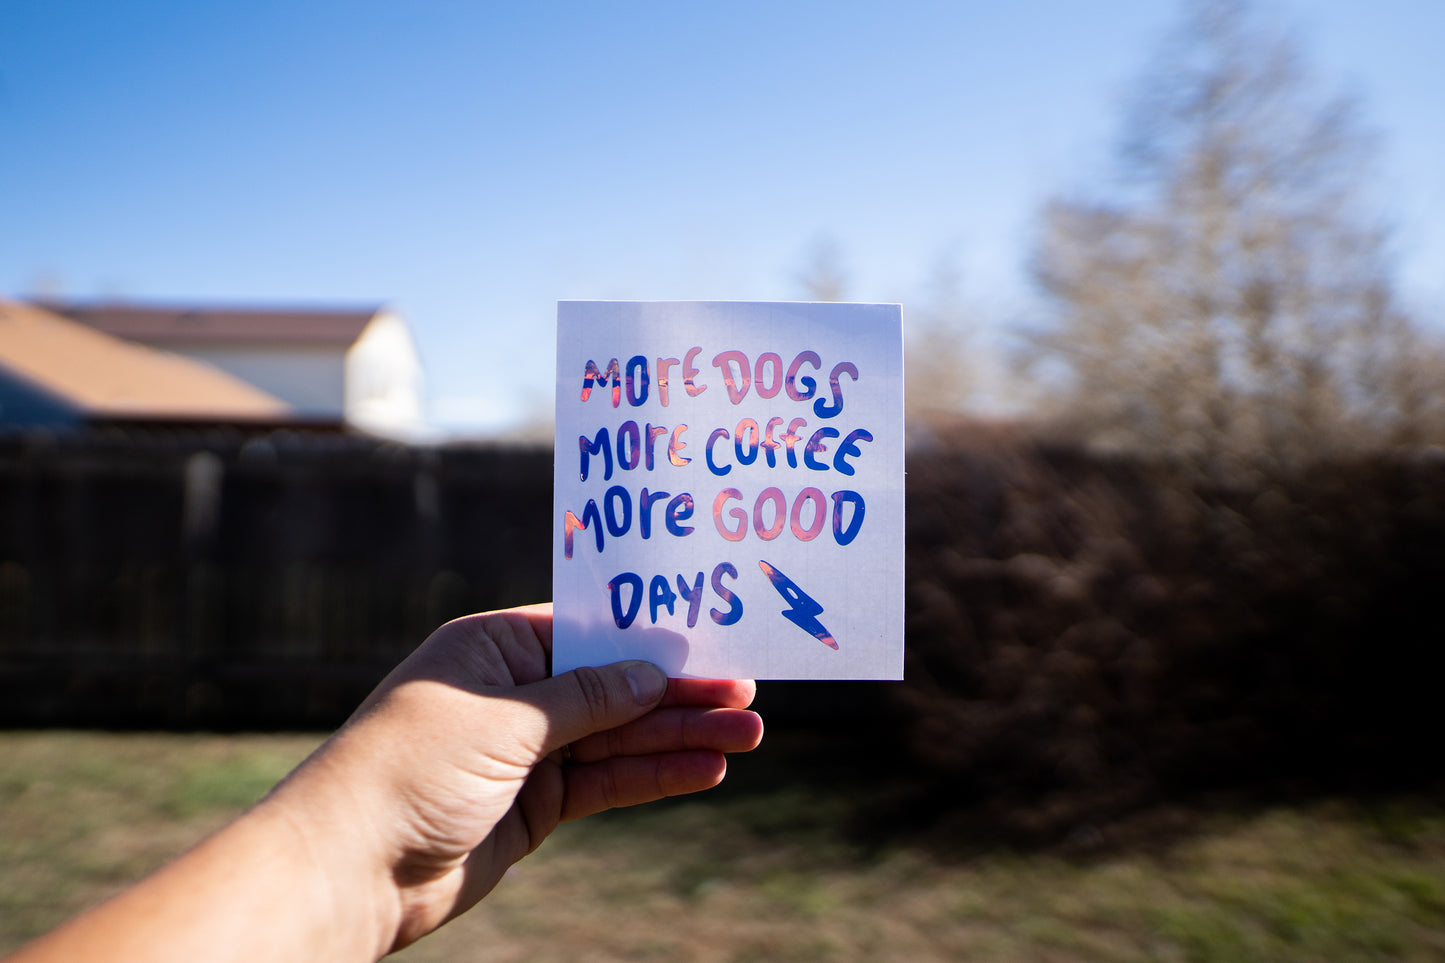 MORE DOGS
MORE COFFEE
MORE GOOD
DAYS